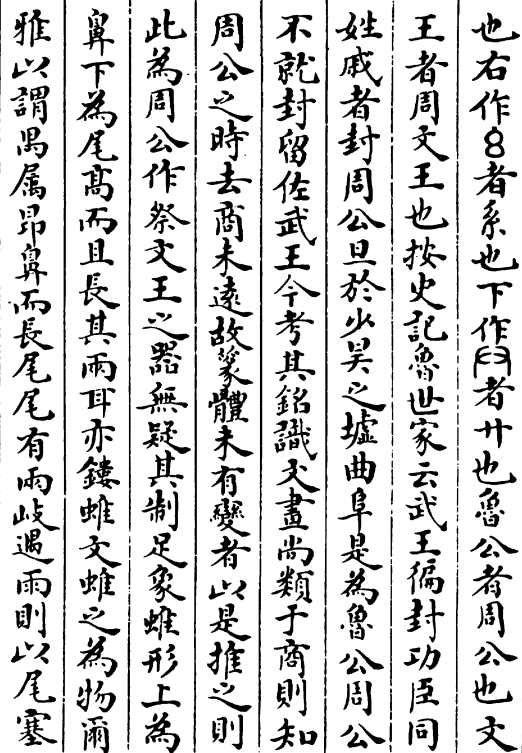 也右作𠃉者系也下作𦥑者廾也魯公者周公也文
王者周文王也按史記魯世家云武王徧封功臣同
姓戚者封周公旦於少昊之墟曲阜是為魯公周公
不就封留佐武王今考其銘識文畫尚類于商則知
周公之時去商未遠故篆體未有變者以是推之則
此為周公作祭文王之器無疑其制足象蜼形上為
鼻下為尾高而且長其兩耳亦鏤蜼文蜼之為物爾
雅以謂禺属昂鼻而長尾尾有兩岐遇雨則以尾塞